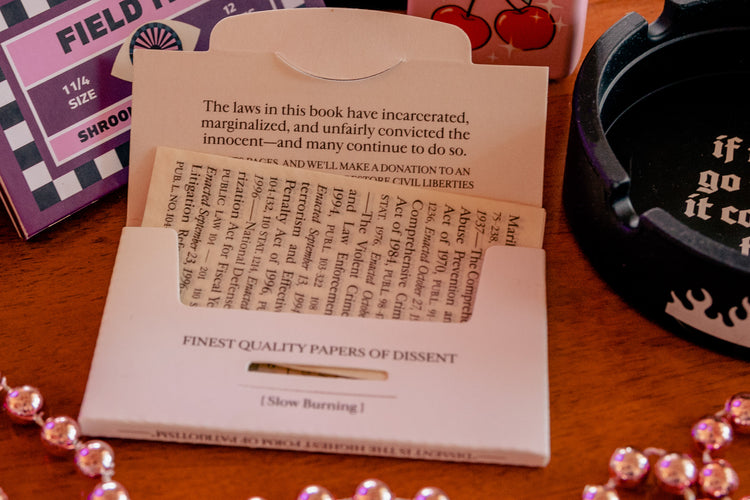 FIELD
1 1/4
SIZE
12
The laws in this book have incarcerated,
marginalized, and unfairly convicted the
innocent—and many continue to do so.
PAGES, AND WE'LL MAKE A DONATION TO AN
RESTORE CIVIL LIBERTIES
1937—The Comp
Abuse Prevention an
Act of 1970, PUB.L. 91-
1236, Enacted October 27, 1
Comprehensive Crim
Act of 1984, PUB.L. 98-
STAT. 1976, Enacted Octob
—The Violent Crime
and Law Enforcemen
1994, PUB.L. 103-322 108
Enacted September 13, 1994
Terrorism and Effectiv
Penalty Act of 1996, P
104-132 110 STAT. 1214, Enacted
1996—National Defense
rization Act for Fiscal Ye
PUBLIC LAW 104 – 201 110 S
Enacted September 23, 1996
Litigation Re
PUB L. NO. 104
FINEST QUALITY PAPERS OF DISSENT
[Slow Burning]
DISSENT IS THE HIGHEST FORM OF PATRIOTISM
if
go
it co